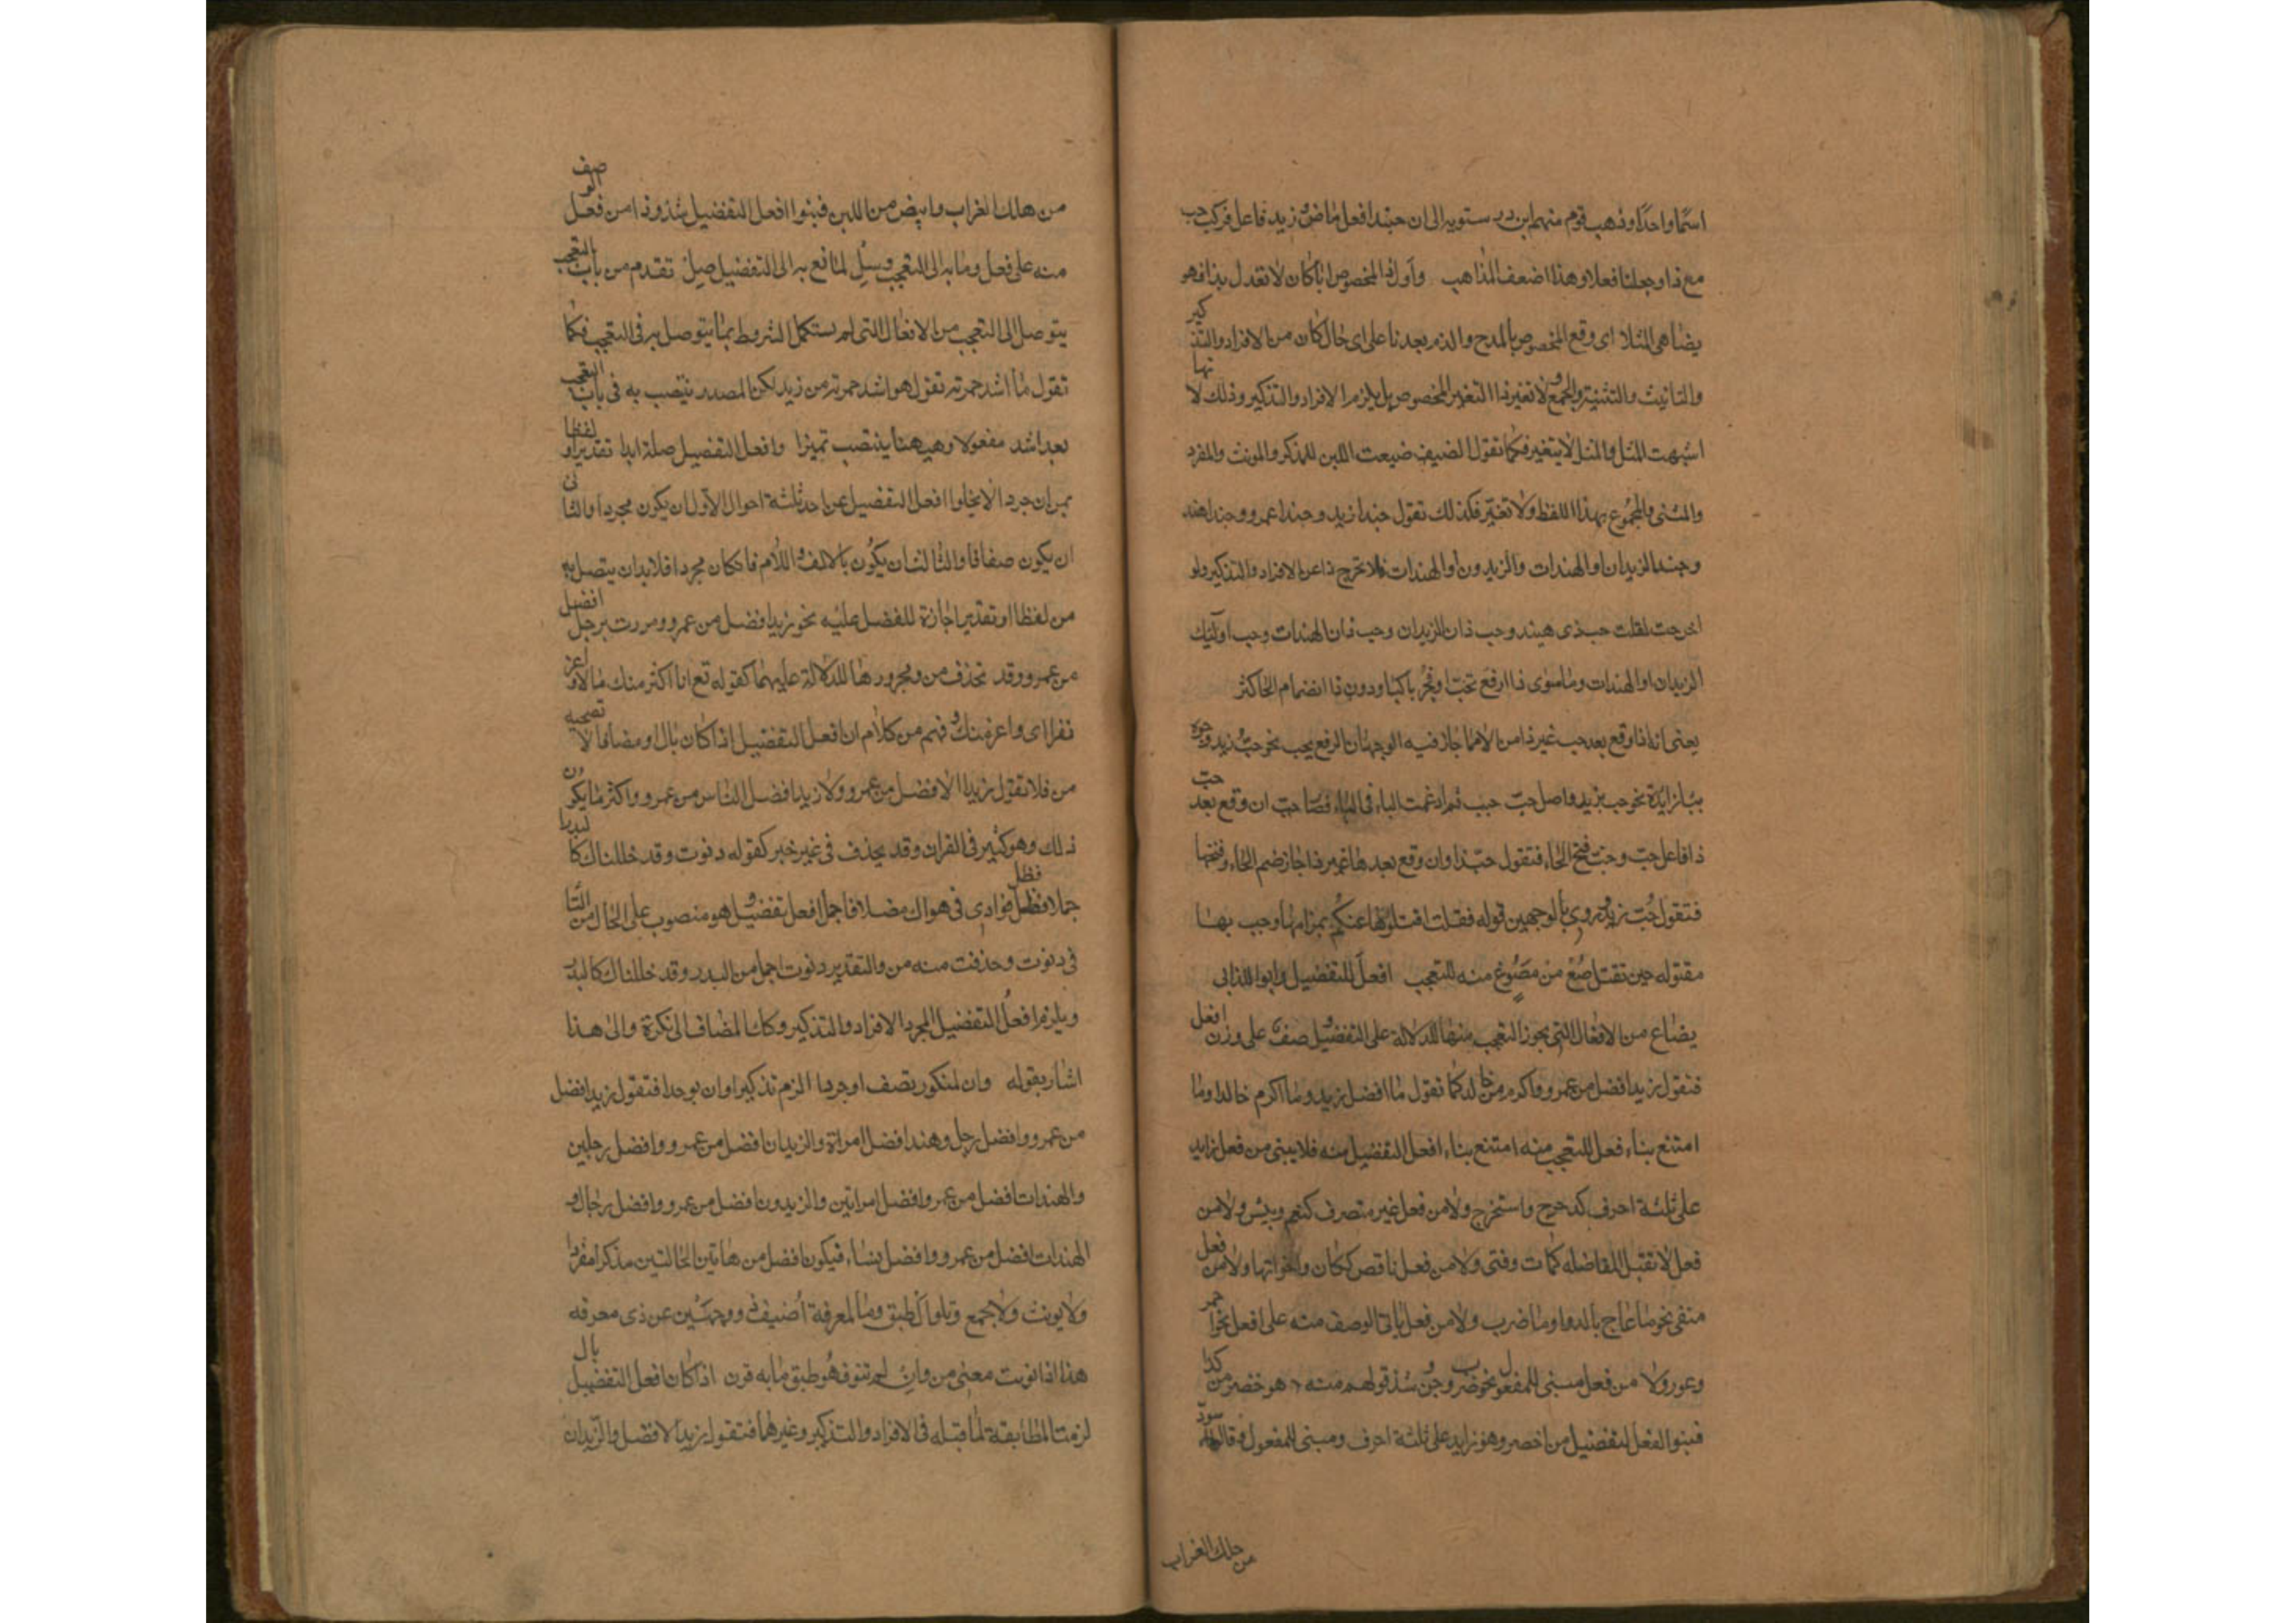 اسما واحدا وذهب قوم منهم ابن درستويه الى ان حبذا فعل ماض وزيد فاعل فركب حب
مع ذا وجعلنا فعلا وهذا اضعف المذاهب واول ذا المخصوص ايا كان لا تعدل بذا فهو
يضاهى المثلا اى وقع المخصوص بالمدح والذم بعد ذا على اى حال كان من الافراد والتذكير
والتانيث والتثنية والجمع ولا تغير ذا التغير المخصوص بل يلزم الافراد والتذكير وذلك لانها
اشبهت المثل والمثل لا يتغير فكما تقول الضيف ضيعت اللبن للمذكر والمونث والمفرد
والمثنى والمجموع بهذا اللفظ ولا تغير فكذلك تقول حبذا زيد وحبذا عمرو وحبذا هند
وحبذا الزيدان او الهندات والزيدون او الهندات فلا تخرج ذا عن الافراد والتذكير ولو
اخرجت لقلت حب ذى هيند وحب ذان الزيدان وحب تان الهندات وحب اولئك
الزيدان او الهندات وما سوى ذا ارفع بحب او فجر بالبا ودون ذا انضمام الحا كثر
يعنى انه اذا وقع بعد حب غير ذا من الاسما جاز فيه الوجهان الرفع بحب نحو حب زيد وجره
ببا زايدة نحو حب بزيد واصل حب حبب ثم ادغمت الباء فى الباء فصار حب ان وقع بعد حب
ذا فاعل حب وجب فتح الحاء فتقول حبذا وان وقع بعدها غير ذا جاز ضم الحاء وفتحها
فتقول حب زيد وروى بالوجهين قوله فقلت اقتلوها عنكم بمزاجها وحب بها
مقتولة حين تقتل صغ من مصوغ منه للتعجب افعل للتفضيل واب اللذابى
يصاغ من الافعال التى يجوز التعجب منها للدلالة على التفضيل وصف على وزن افعل
فتقول زيد افضل من عمرو واكرم من خالد كما تقول ما افضل زيد وما اكرم خالدا وما
امتنع بناء فعل للتعجب منه امتنع بناء افعل التفضيل منه فلا يبنى من فعل زايد
على ثلثة احرف كدحرج واستخرج ولا من فعل غير متصرف كنعم وبيس ولا من
فعل لا تقبل المفاضله كمات وفنى ولا من فعل ناقص ككان واخواتها ولا من فعل
منفى نحو ما عاج بالدوا وما ضرب ولا من فعل ياتى الوصف منه على افعل نحو حمر
وعور ولا من فعل مبنى للمفعول نحو ضرب وجن وشذ قولهم منه هو خصر من كذا
فبنوا افعل لتفضيل من اخصر وهو زايد على ثلثة احرف ومبنى للمفعول وقالوا اسود
من حلك الغراب
من هلك الغراب وابيض من اللبن فبنوا افعل التفضيل شذوذا من فعل الوصف
منه على فعل وما به الى التعجب وصل لمانع به الى التفضيل صل تقدم من باب التعجب
يتوصل الى التعجب من الافعال التى لم يستكمل الشروط بما يتوصل به فى التعجب فكما
تقول ما اشد حمرته تقول هو اشد حمرته من زيد لكن المصدر ينتصب به فى باب التعجب
بعد اشد مفعولا وهيهنا ينتصب تميزا وافعل التفضيل صله ابدا تقديرا او لفظا
بمن ان جردا لا يخلوا افعل التفضيل عن احد ثلثة احوال الاول ان يكون مجردا والثانى
ان يكون مضافا والثالث ان يكون بالالف واللام فان كان مجردا فلا بد ان يتصل به
من لفظا او تقديرا جازة للفضل عليه نحو زيد افضل من عمرو ومررت برجل افضل
من عمرو وقد تحذف من ومجرورها للدلالة عليهما كقوله تع انا اكثر منك مالا واعز
نفرا اى واعز منك وفهم من كلام ان افعل التفضيل اذا كان بال او مضافا لا تصحبه
من فلا تقول زيد الافضل من عمرو ولا زيد افضل الناس من عمرو واكثر ما يكون
ذلك وهو كثير فى القران وقد يحذف فى غير خبر كقوله دنوت وقد خلناك كالبدر
اجملا فظل فوادى فى هواك مضللا فاجمل افعل تفضيل وهو منصوب على الحال من التا
فى دنوت وحذفت منه من والتقدير دنوت اجمل من البدر وقد خللناك كالبدر
ويلزم افعل التفضيل المجرد الافراد والتذكير وكذا المضاف الى نكرة والى هذا
اشار بقوله وان لمنكور يضف او جردا الزم تذكيرا وان يوحدا فتقول زيد افضل
من عمرو وافضل رجل وهند افضل امراة والزيدان افضل من عمرو وافضل رجلين
والهندات افضل من عمرو افضل امراتين والزيدون افضل من عمرو وافضل رجال و
الهندات افضل من عمرو وافضل نساء فيكون افضل من هاتين الحالتين مذكرا مفردا
ولا يونث ولا يجمع وتلو ال طبق وما لمعرفة اضيف ذو وجهين عن ذى معرفه
هذا اذا نويت معنى من وان لم تنوف هو طبق ما به قرن اذا كان افعل التفضيل بال
لزمت المطابقة لما قبله فى الافراد والتذكير وغيرهما فتقول زيد الافضل والزيدان